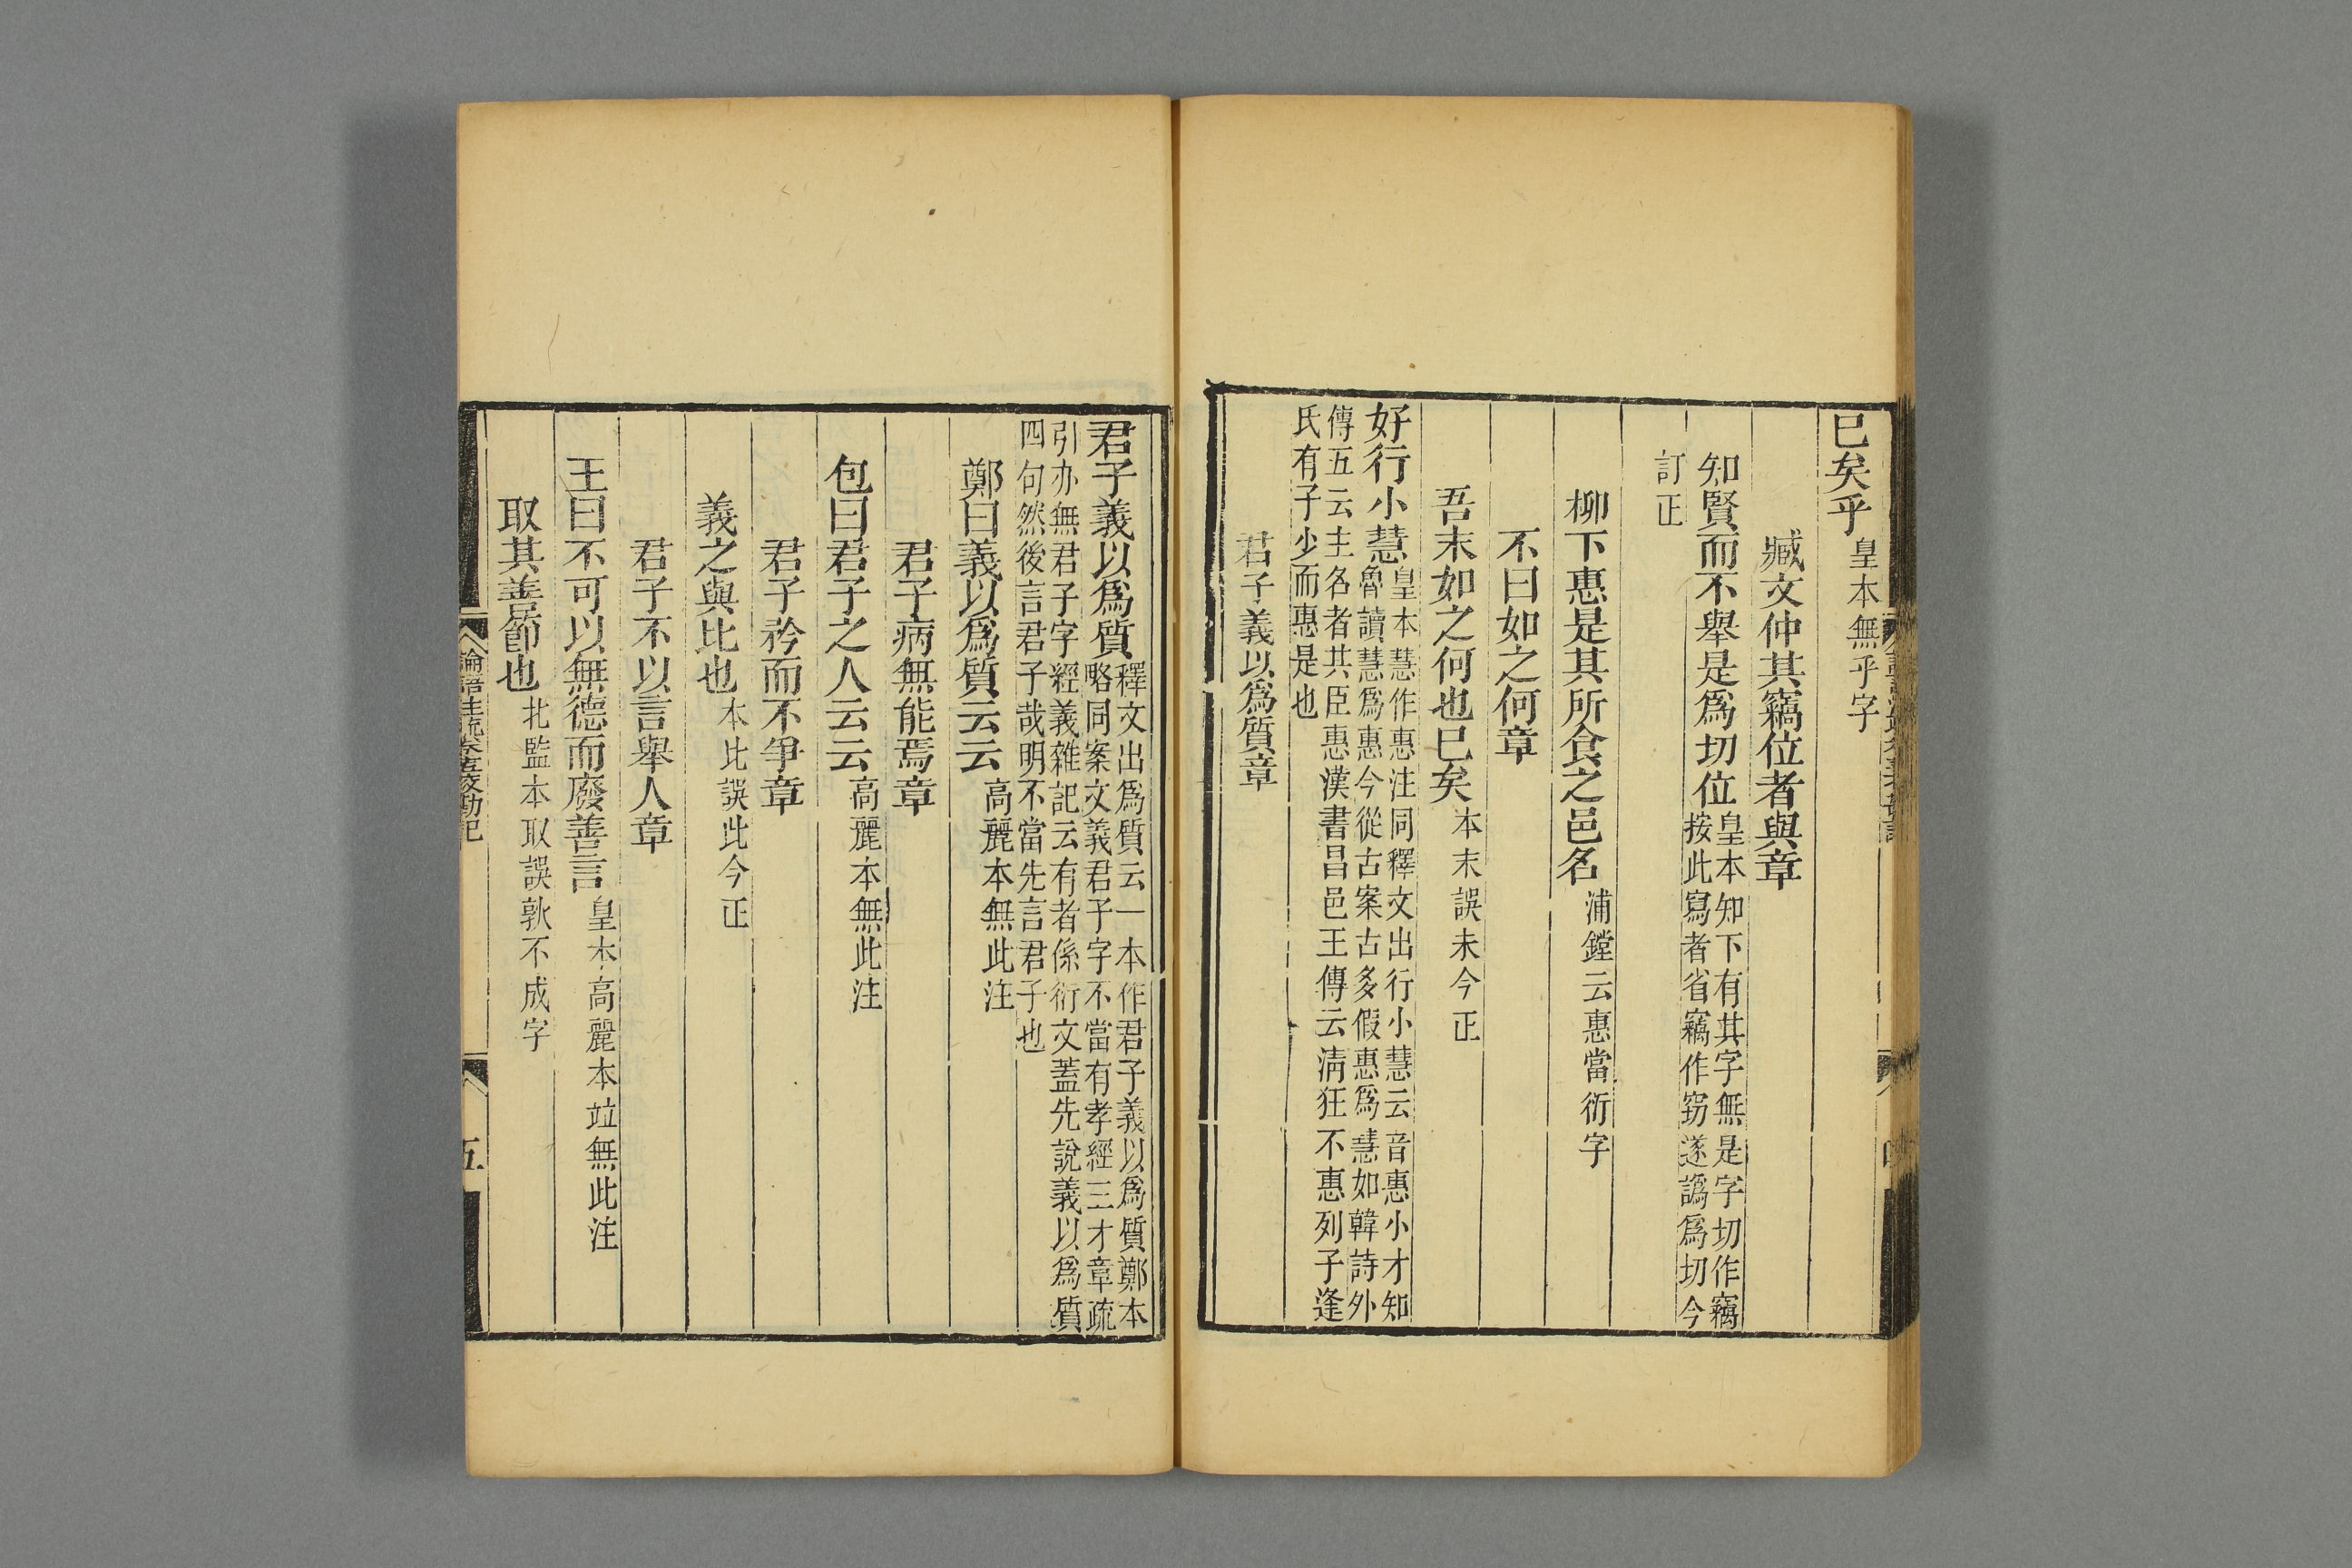 已矣乎皇本無乎字
臧文仲其竊位者與章
知賢而不舉是爲切位皇本知下有其字無是字切作竊
按此寫者省竊作窃遂譌爲切今
訂正
柳下惠是其所食之邑名浦鏜云惠當衍字
不曰如之何章
吾末如之何也已矣本末誤未今正
好行小慧皇本慧作惠注同釋文出行小慧云音惠小才知
魯讀慧爲惠今從古案古多假惠爲慧如韓詩外
傳五云主名者共臣惠漢書昌邑王傳云淸狂不惠列子逢
氏有子少而惠是也
君子義以爲質章
君子義以爲質釋文出爲質云一本作君子義以爲質鄭本
略同案文義君子字不當有孝經三才章疏
引亦無君子字經義雜記云有者係衍文蓋先說義以爲質
四句然後言君子哉明不當先言君子也
鄭曰義以爲質云云高麗本無此注
君子病無能焉章
包曰君子之人云云高麗本無此注
君子矜而不爭章
義之與比也本比誤此今正
君子不以言舉人章
王曰不可以無德而廢善言皇本高麗本竝無此注
取其善節也北監本取誤㪁不成字
論語注疏卷十五校勘記
五